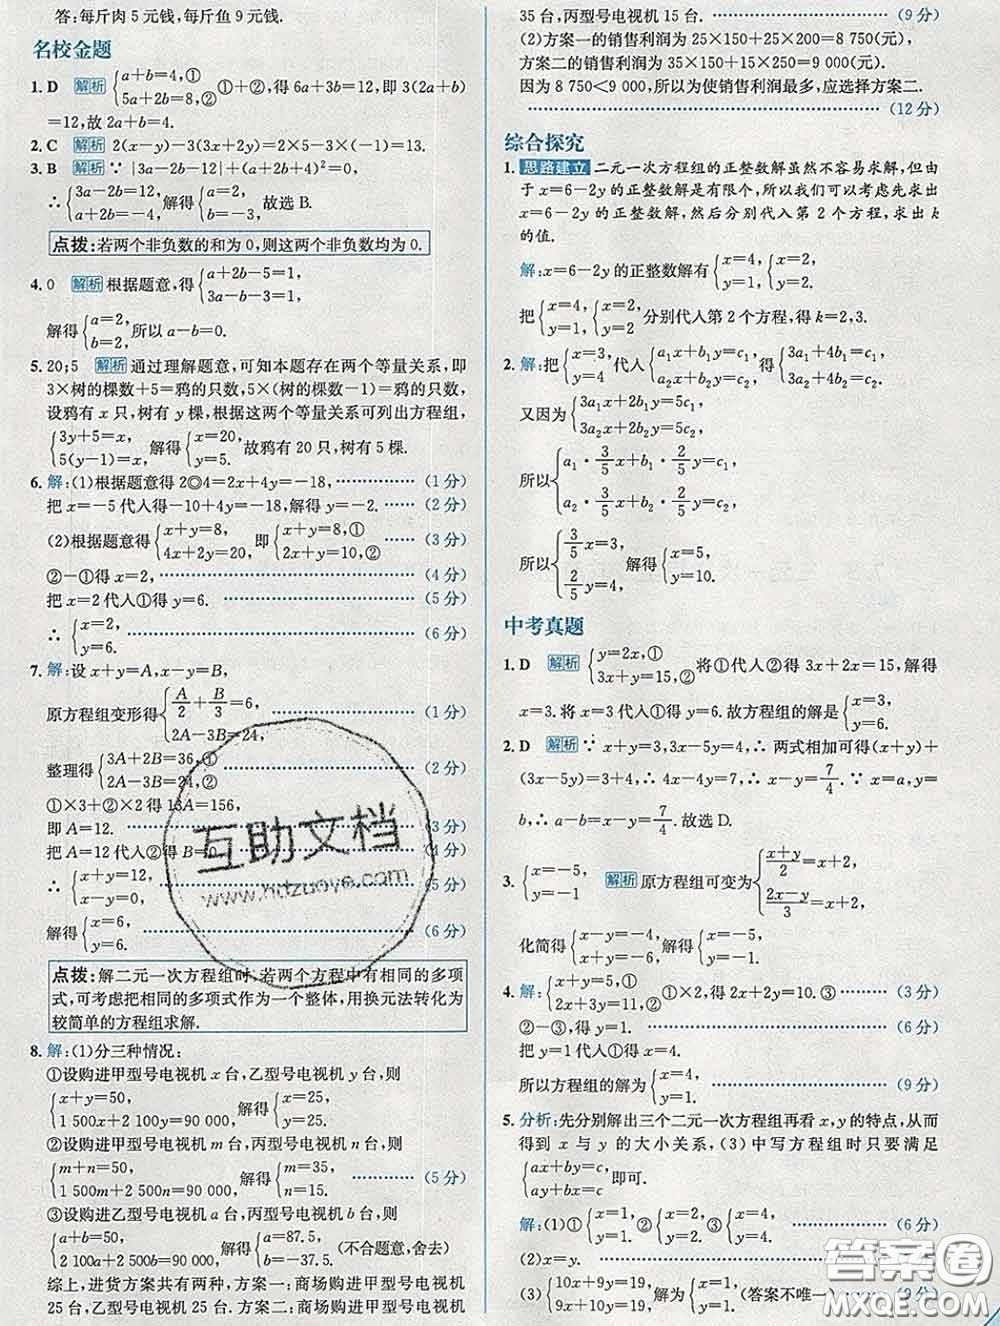 答:每斤肉5元钱,每斤鱼9元钱.
名校金题
1. D 解析 {a+b=4,① 5a+2b=8,② ①+②,得6a+3b=12,即3(2a+b)
=12,故2a+b=4.
2. C 解析 2(x-y)-3(3x+2y)=2×5-3×(-1)=13.
3. B 解析 ∵|3a-2b-12|+(a+2b+4)²=0,
∴{3a-2b=12, a+2b=-4, 解得{a=2, b=-3, 故选B.
点拨:若两个非负数的和为0,则这两个非负数均为0.
4. 0 解析 根据题意,得{a+2b-5=1, 3a-b-3=1,
解得{a=2, b=2, 所以a-b=0.
5. 20;5 解析 通过理解题意,可知本题存在两个等量关系,即
3×树的棵数+5=鸦的只数,5×(树的棵数-1)=鸦的只数,
设鸦有x只,树有y棵,根据这两个等量关系可列出方程组,
{3y+5=x, 5(y-1)=x, 解得{x=20, y=5, 故鸦有20只,树有5棵.
6. 解:(1)根据题意得2◎4=2x+4y=-18, (1分)
把x=-5代入得-10+4y=-18,解得y=-2. (2分)
(2)根据题意得{x+y=8, 4x+2y=20, 即{x+y=8,① 2x+y=10,② (3分)
②-①得x=2, (4分)
把x=2代入①得y=6. (5分)
∴{x=2, y=6. (6分)
7. 解:设x+y=A,x-y=B,
原方程组变形得{A/2+B/3=6, 2A-3B=24, (1分)
整理得{3A+2B=36,① 2A-3B=24,② (2分)
①×3+②×2得13A=156,
即A=12. (3分)
把A=12代入②得B=0 (4分)
∴{x+y=12, x-y=0, (5分)
解得{x=6, y=6. (6分)
点拨:解二元一次方程组时,若两个方程中有相同的多项
式,可考虑把相同的多项式作为一个整体,用换元法转化为
较简单的方程组求解.
8. 解:(1)分三种情况:
①设购进甲型号电视机x台,乙型号电视机y台,则
{x+y=50, 1 500x+2 100y=90 000, 解得{x=25, y=25.
②设购进甲型号电视机m台,丙型号电视机n台,则
{m+n=50, 1 500m+2 500n=90 000, 解得{m=35, n=15. (5分)
③设购进乙型号电视机a台,丙型号电视机b台,则
{a+b=50, 2 100a+2 500b=90 000, 解得{a=87.5, b=-37.5. (不合题意,舍去)
综上,进货方案共有两种,方案一:商场购进甲型号电视机
25台,乙型号电视机25台.方案二:商场购进甲型号电视机
35台,丙型号电视机15台. (9分)
(2)方案一的销售利润为25×150+25×200=8 750(元),
方案二的销售利润为35×150+15×250=9 000(元),
因为8 750<9 000,所以为使销售利润最多,应选择方案二.
(12分)
综合探究
1. 思路建立 二元一次方程组的正整数解虽然不容易求解,但由
于x=6-2y的正整数解是有限个,所以我们可以考虑先求出
x=6-2y的正整数解,然后分别代入第2个方程,求出k
的值.
解:x=6-2y的正整数解有{x=4, y=1, {x=2, y=2.
把{x=4, y=1, {x=2, y=2 分别代入第2个方程,得k=2,3.
2. 解:把{x=3, y=4 代入{a₁x+b₁y=c₁, a₂x+b₂y=c₂, 得{3a₁+4b₁=c₁, 3a₂+4b₂=c₂.
又因为{3a₁x+2b₁y=5c₁, 3a₂x+2b₂y=5c₂,
所以{a₁·3/5x+b₁·2/5y=c₁, a₂·3/5x+b₂·2/5y=c₂,
所以{3/5x=3, 2/5y=4, 解得{x=5, y=10.
中考真题
1. D 解析 {y=2x,① 3x+y=15,② 将①代入②得3x+2x=15,解得
x=3.将x=3代入①得y=6.故方程组的解是{x=3, y=6.
2. D 解析 ∵x+y=3,3x-5y=4,∴两式相加可得(x+y)+
(3x-5y)=3+4,∴4x-4y=7,∴x-y=7/4.∵x=a,y=
b,∴a-b=x-y=7/4.故选D.
3. {x=-5, y=-1 解析 原方程组可变为{(x+y)/2=x+2, (2x-y)/3=x+2,
化简得{x-y=-4, x+y=-6, 解得{x=-5, y=-1.
4. 解:{x+y=5,① 2x+3y=11,② ①×2,得2x+2y=10.③ (3分)
②-③,得y=1. (6分)
把y=1代入①得x=4.
所以方程组的解为{x=4, y=1. (9分)
5. 分析:先分别解出三个二元一次方程组再看x,y的特点,从而
得到x与y的大小关系,(3)中写方程组时只要满足
{ax+by=c, ay+bx=c 即可.
解:(1)①{x=1, y=1. ②{x=2, y=2. ③{x=4, y=4. (6分)
(2)x=y.
(3){10x+9y=19, 9x+10y=19, 解得{x=1, y=1. (答案不唯一) (9分)
互助文档
www.hdzuoye.com
答案圈
MXQE.COM